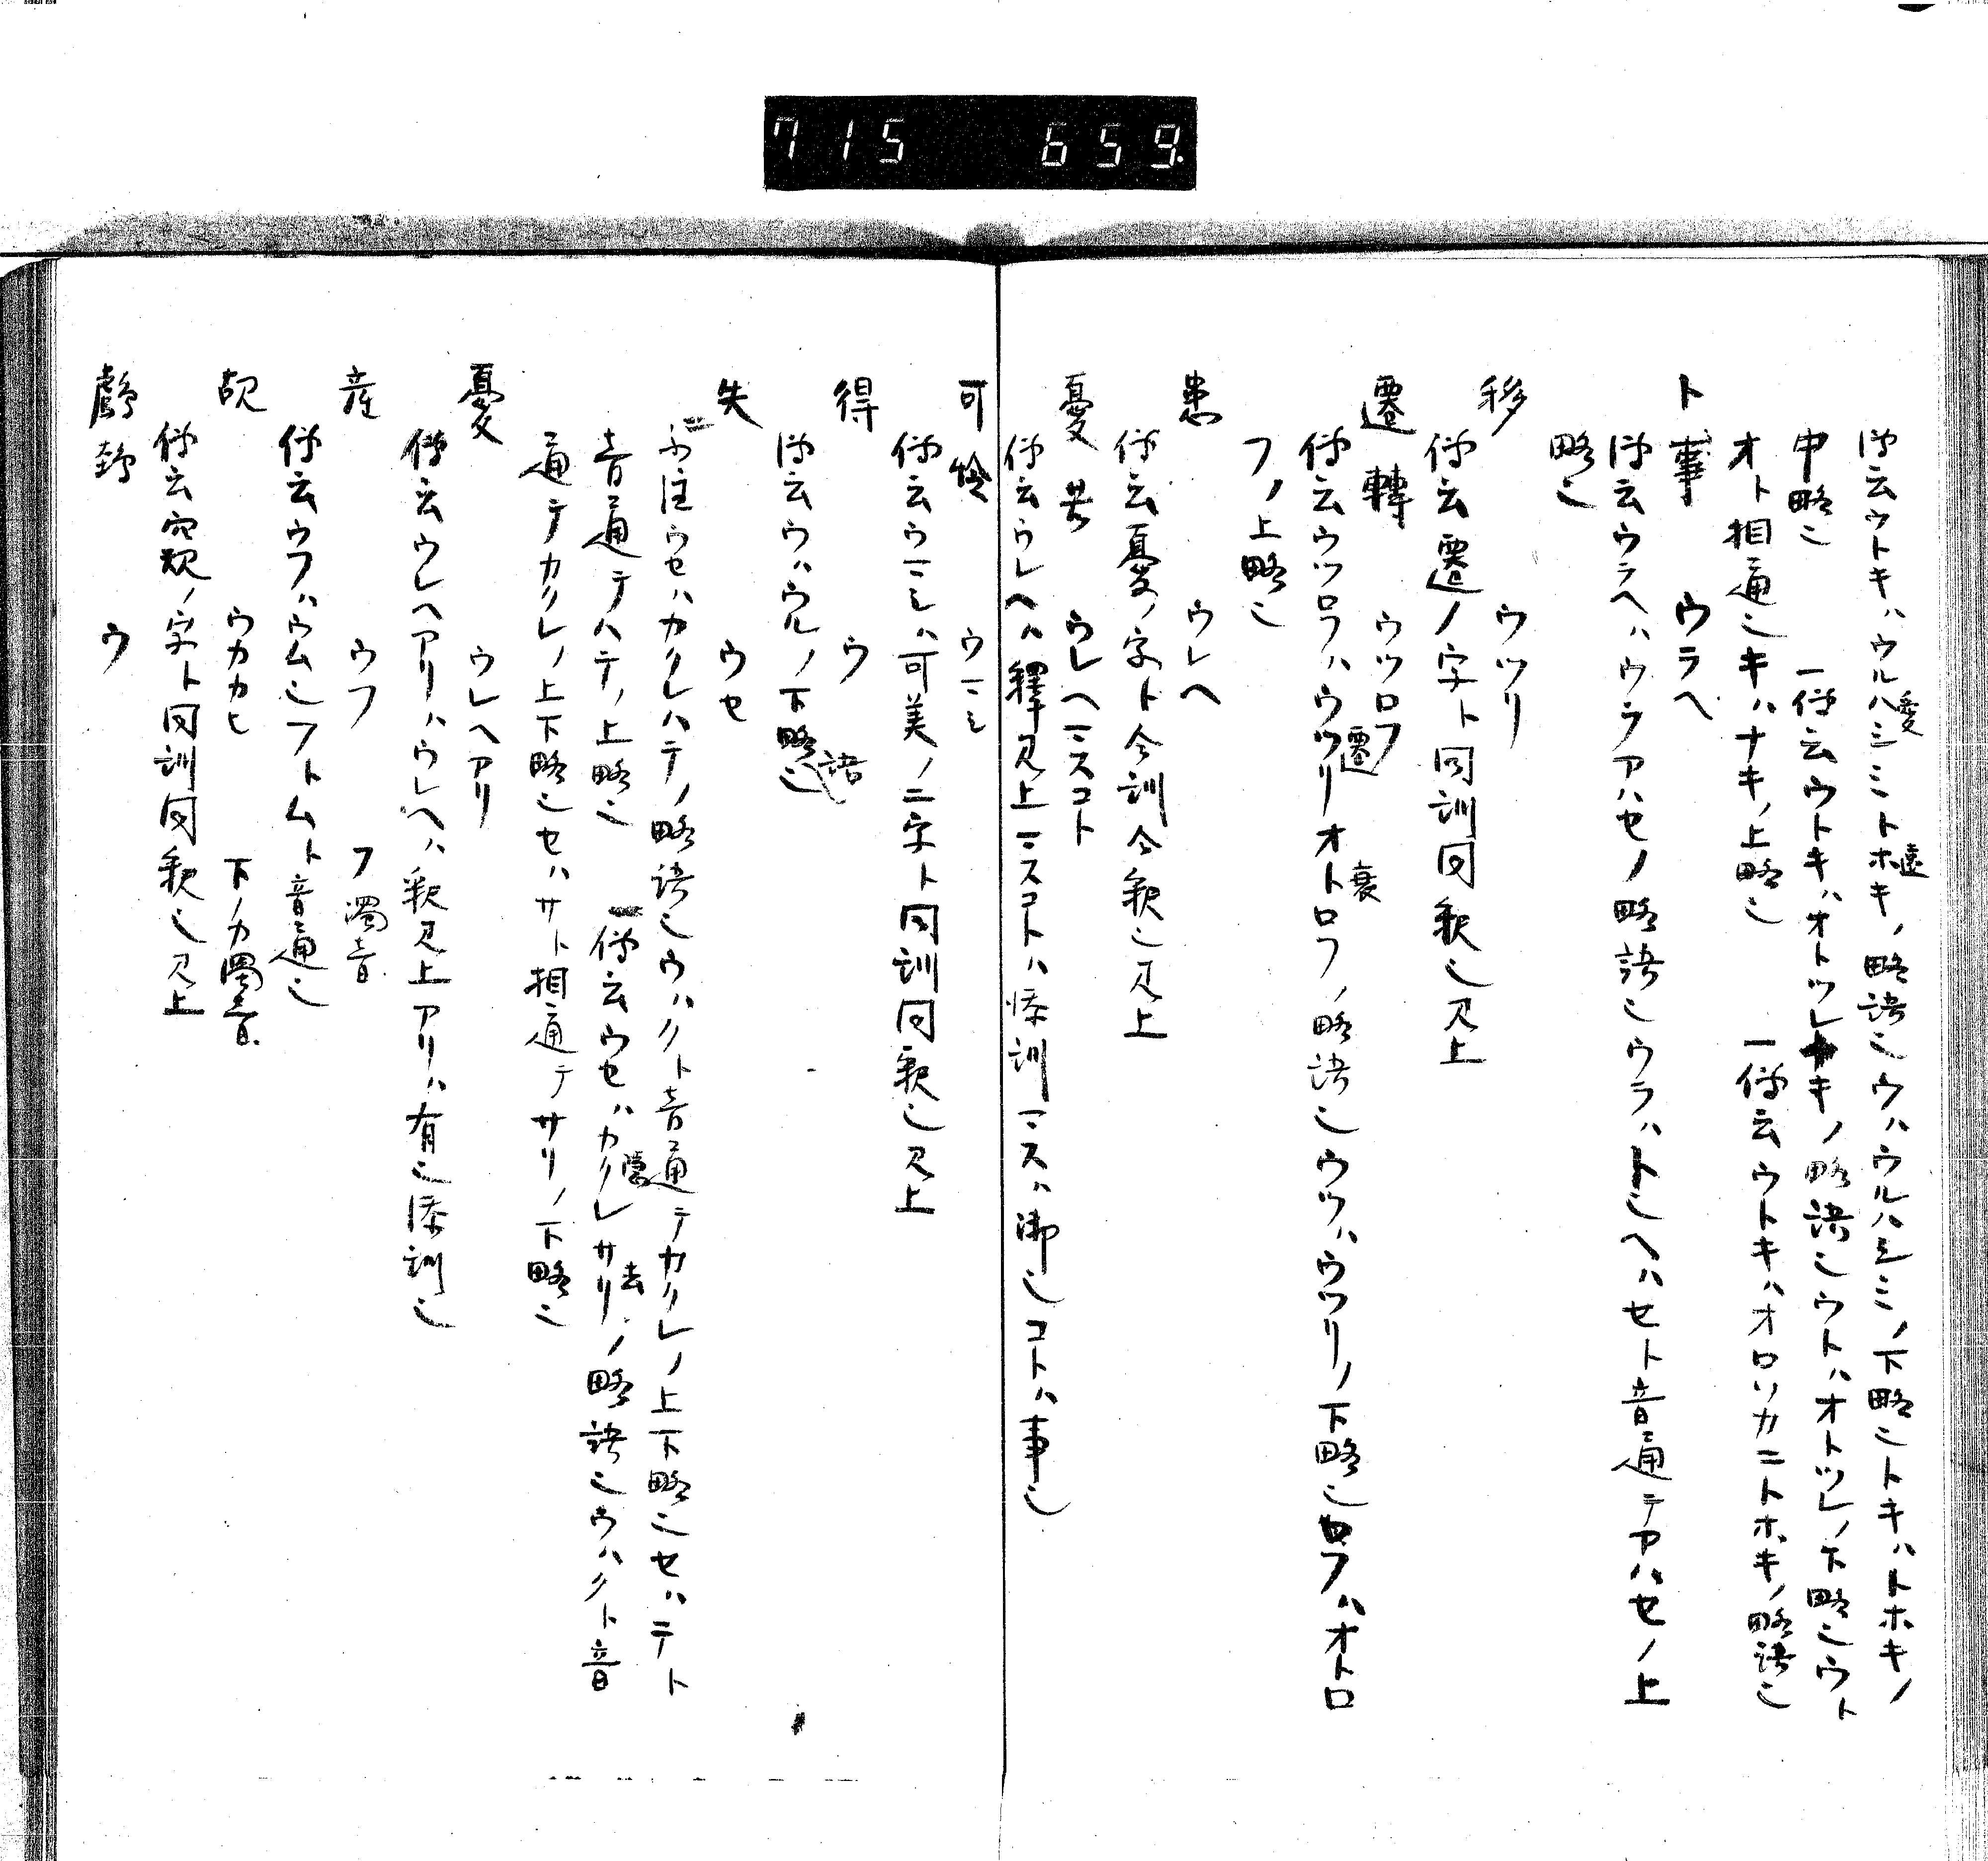 715 659
師云ウトキハウルハシミトホキノ略語也ウハウルハシミノ下略也トキハトホキノ
愛 遠
中略也 一師云ウトキハオトツレナキノ略語也ウトハオトツレノ下略也ウト
オト相通也キハナキノ上略也 一師云ウトキハオロソカニトホキノ略語也
卜事 ウラヘ
師云ウラヘハウラアハセノ略語也ウラハ卜也ヘハセト音通テアハセノ上
略也
移 ウツリ
師云遷ノ字ト同訓同釈也見上
遷轉 ウツロフ
師云ウツロフハウツリオトロフノ略語也ウツハウツリノ下略也ロフハオトロ
遷 衰
フノ上略也
患 ウレヘ
師云憂ノ字ト今訓今釈也見上
憂苦 ウレヘマスコト
師云ウレヘハ釋見上マスコトハ添訓マスハ御也コトハ事也
可怜 ウマシ
師云ウマシハ可美ノ二字ト同訓同釈也見上
得 ウ
師云ウハウルノ下略也
語
失 ウセ
注ウセハカクレハテノ略語也ウハクト音通テカクレノ上下略也セハテト
音通テハテノ上略也 一師云ウセハカクレサリノ略語也ウハクト音
隠 去
通テカクレノ上下略也セハサト相通テサリノ下略也
憂 ウレヘアリ
師云ウレヘアリハウレヘハ釈見上アリハ有也添訓也
産 ウフ フ濁音
師云ウフハウム也フトムト音通也
覘 ウカカヒ 下ノカ濁音
師云窺ノ字ト同訓同釈也見上
ウ